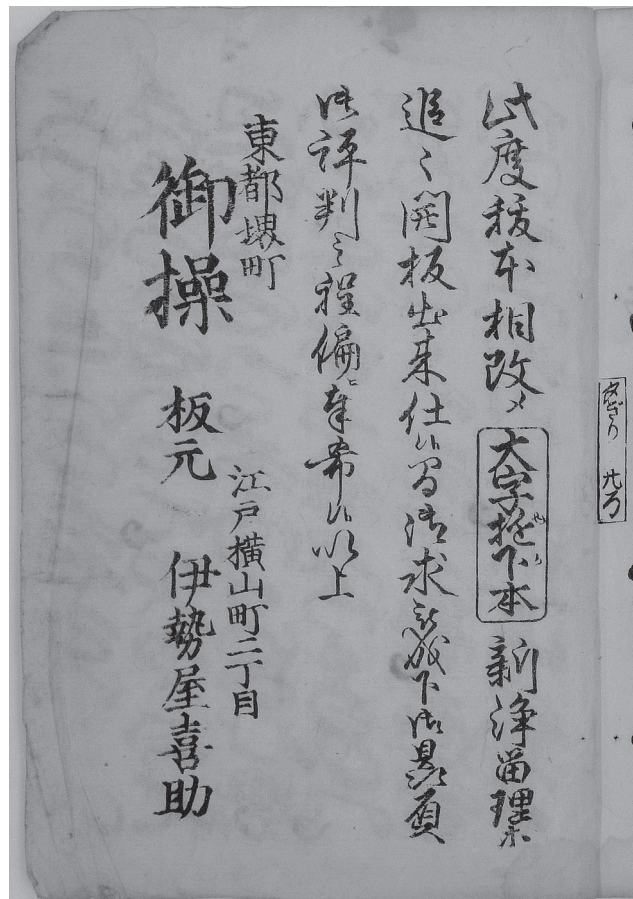 此度稽本相改メ大字抜下本新浄留理等
追々開板出来仕候間御求被成下御贔屓
御評判之程偏ニ奉希候以上
東都堺町
御操
板元
江戸横山町二丁目
伊勢屋喜助